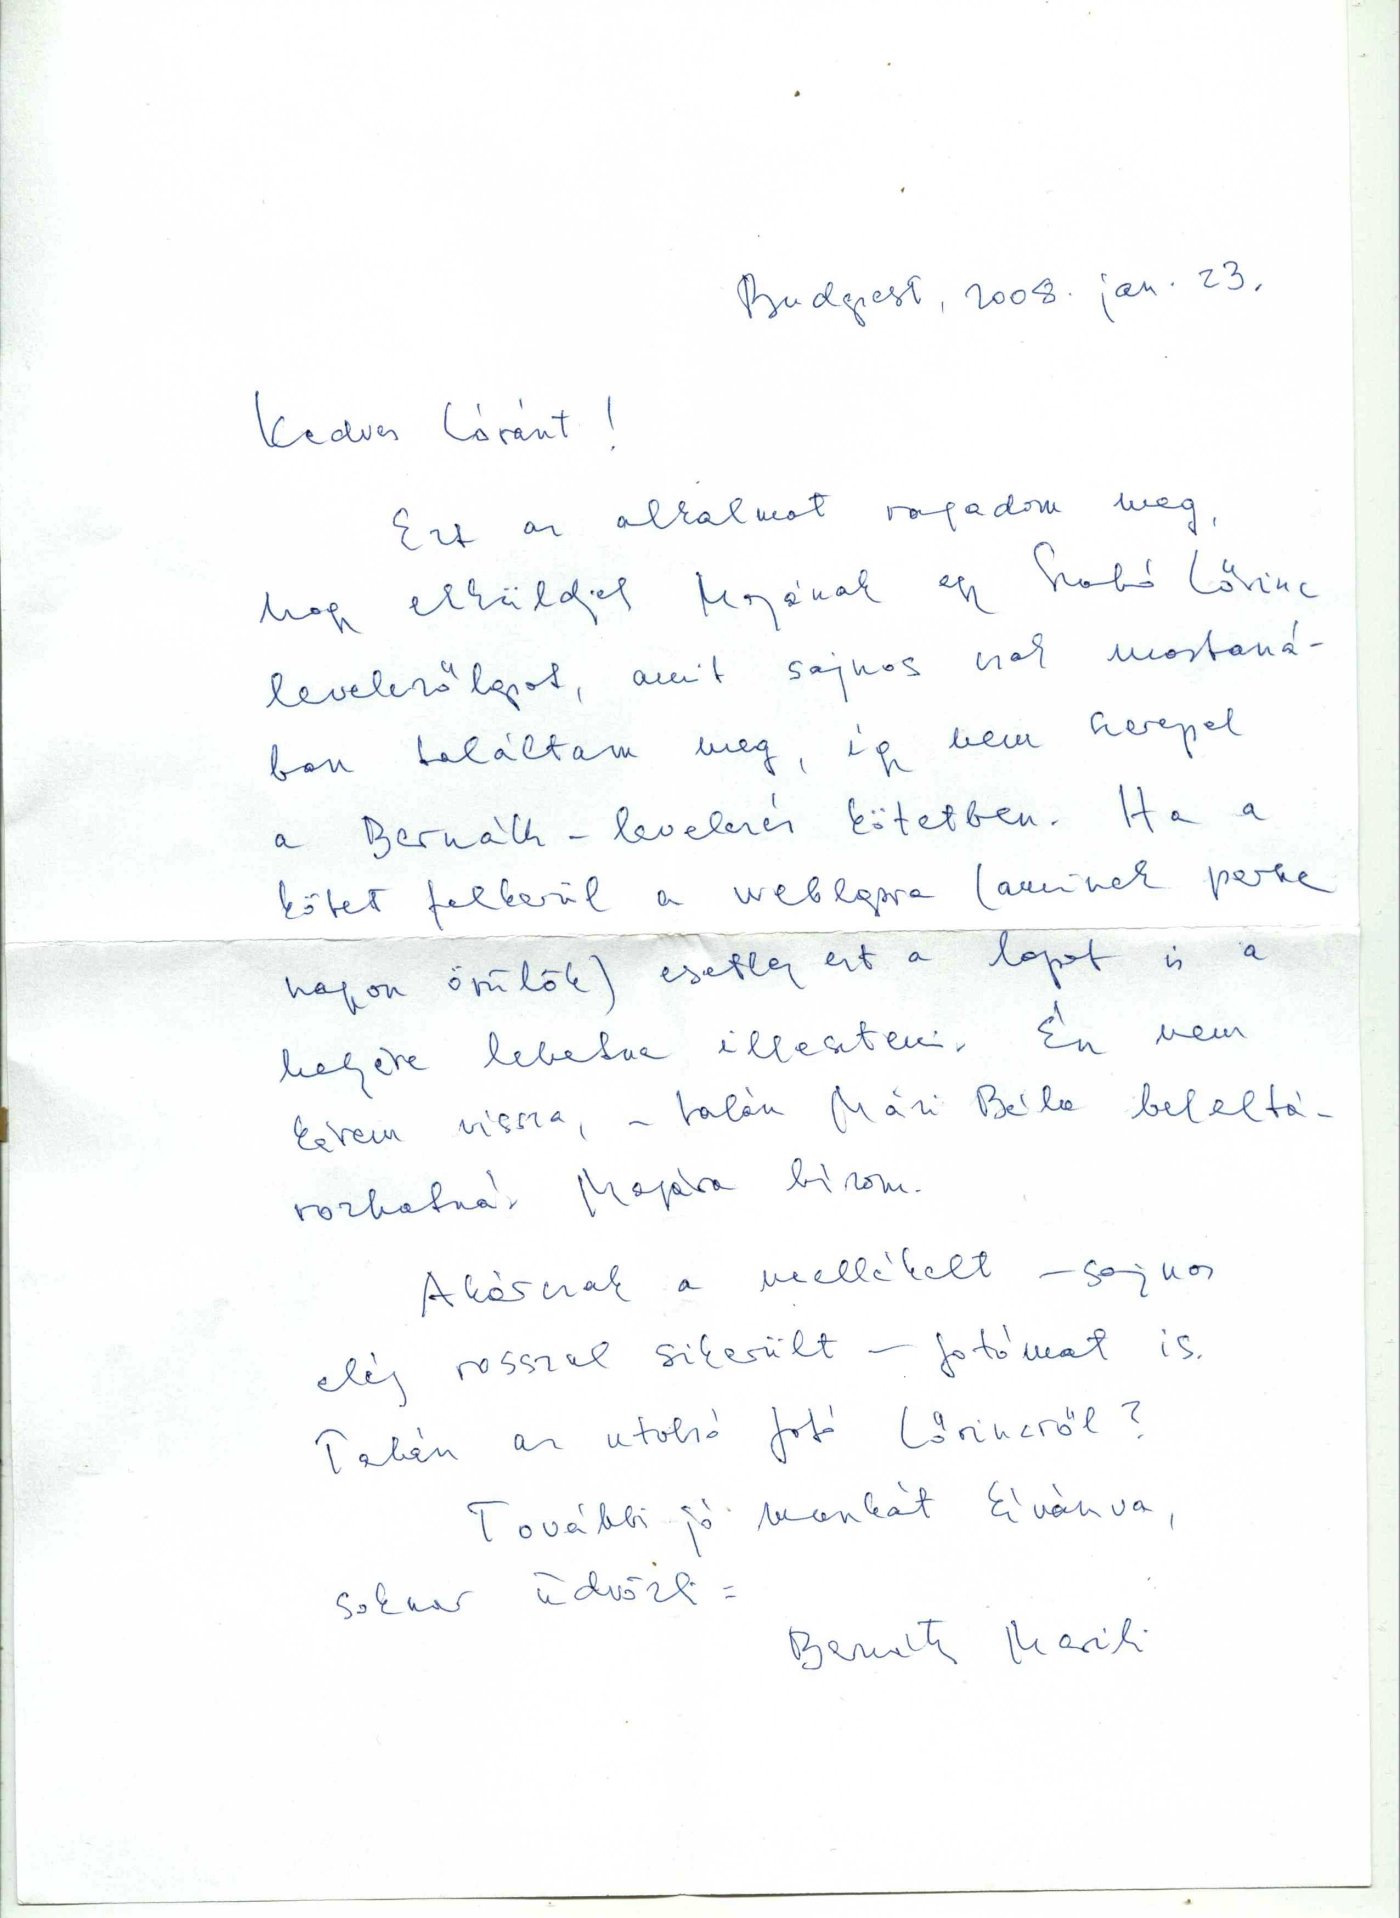 Budapest, 2008. jan. 23.
Kedves Lóránt!
Ezt az alkalmat ragadom meg,
hogy elküldjek Magának egy Szabó Lőrinc
levelezőlapot, amit sajnos csak mostaná-
ban találtam meg, így nem szerepel
a Bernáth-levelezés kötetben. Ha a
kötet felkerül a weblapra (aminek persze
nagyon örülök) esetleg ezt a lapot is a
helyére lehetne illeszteni. Én nem
kérem vissza, – talán Mázi Béla beleltá-
rozhatná. Magára bízom.
Akárcsak a mellékelt – sajnos
elég rosszul sikerült – fotómat is.
Talán az utolsó fotó Lőrincről?
További jó munkát kívánva,
sokszor üdvözli =
Bernáth Marili